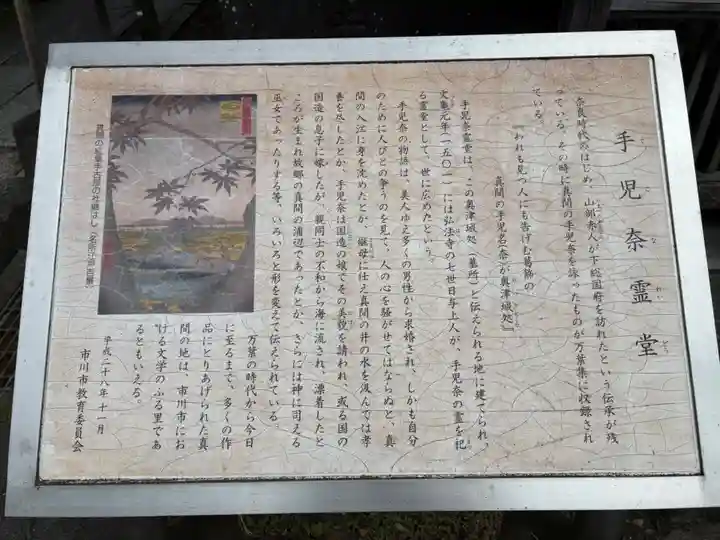 手児奈霊堂
て こ な れい どう
奈良時代のはじめ、山部赤人が下総国府を訪れたという伝承が残
っている。その時に真間の手児奈を詠ったものが万葉集に収録され
ている。
われも見つ人にも告げむ葛飾の
真間の手児名(奈)が奥津城処』
手児奈霊堂は、この奥津城処(墓所)と伝えられる地に建てられ、
文亀元年(一五〇一)には弘法寺の七世日与上人が、手児奈の霊を祀
る霊堂として、世に広めたという。
手児奈の物語は、美人ゆえ多くの男性から求婚され、しかも自分
のために人びとの争うのを見て、人の心を騒がせてはならぬと、真
間の入江に身を沈めたとか、継母に仕え真間の井の水を汲んでは孝
養を尽したとか、手児奈は国造の娘でその美貌を請われ、或る国の
国造の息子に嫁したが、親同士の不和から海に流され、漂着したと
ころが生まれ故郷の真間の浦辺であったとか、さらには神に司える
巫女であったりする等、いろいろと形を変えて伝えられている。
万葉の時代から今日
に至るまで、多くの作
品にとりあげられた真
間の地は、市川市にお
ける文学のふる里であ
るともいえる。
平成二十八年十一月
市川市教育委員会
真間の紅葉手古那の社継はし(名所江戸百景)